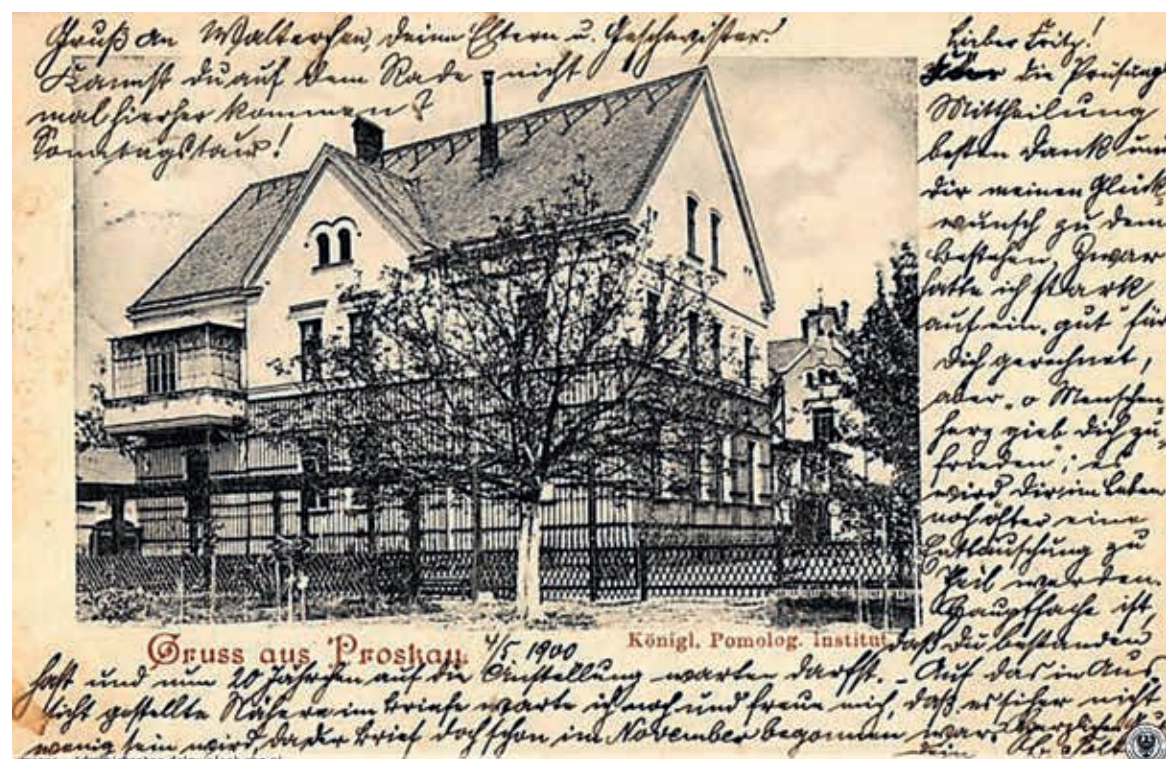 Gruß an Walterchen, deine Eltern u. Geschwister!
Kannst du auf dem Rade nicht
mal hierher kommen?
Sonntagstour!
Lieber Fritz!
Für die Prüfungs-
Mittheilung
besten Dank und
dir meinen Glück-
wunsch zu dem
Bestehen. Zwar
hatte ich stark
auf ein „gut“ für
dich gerechnet,
aber „o Menschen-
herz gieb dich zu-
frieden“; es
wird dir im Leben
noch öfter eine
Enttäuschung zu
Theil werden.
Hauptsache ist,
Gruss aus Proskau.
4/5 1900
Königl. Pomolog. Institut
daß du bestanden
hast und nun 20 Jährchen auf die Anstellung warten darfst. - Auf das in Aus-
sicht gestellte Nähere im Briefe warte ich noch und freue mich, daß es sicher nicht
wenig sein wird, da der Brief doch schon im November begonnen war. Herzlichen
Dein